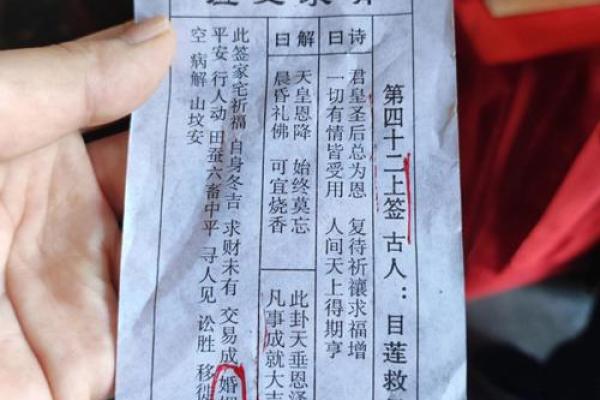 第四十二上签 古人：目莲救
诗曰
君皇圣后总为恩 复待祈禳求福增
一切有情皆受用 人间天上得期亨
解曰
天皇恩降 始终莫忘
晨昏礼佛 可宜烧香
此卦天垂恩泽
凡事成就大吉
此签家宅祈福 自身冬吉 求财未有 交易成 婚
平安 行人动 田蚕六畜中平 寻人见 讼胜 移徙
空 病解 山坟安